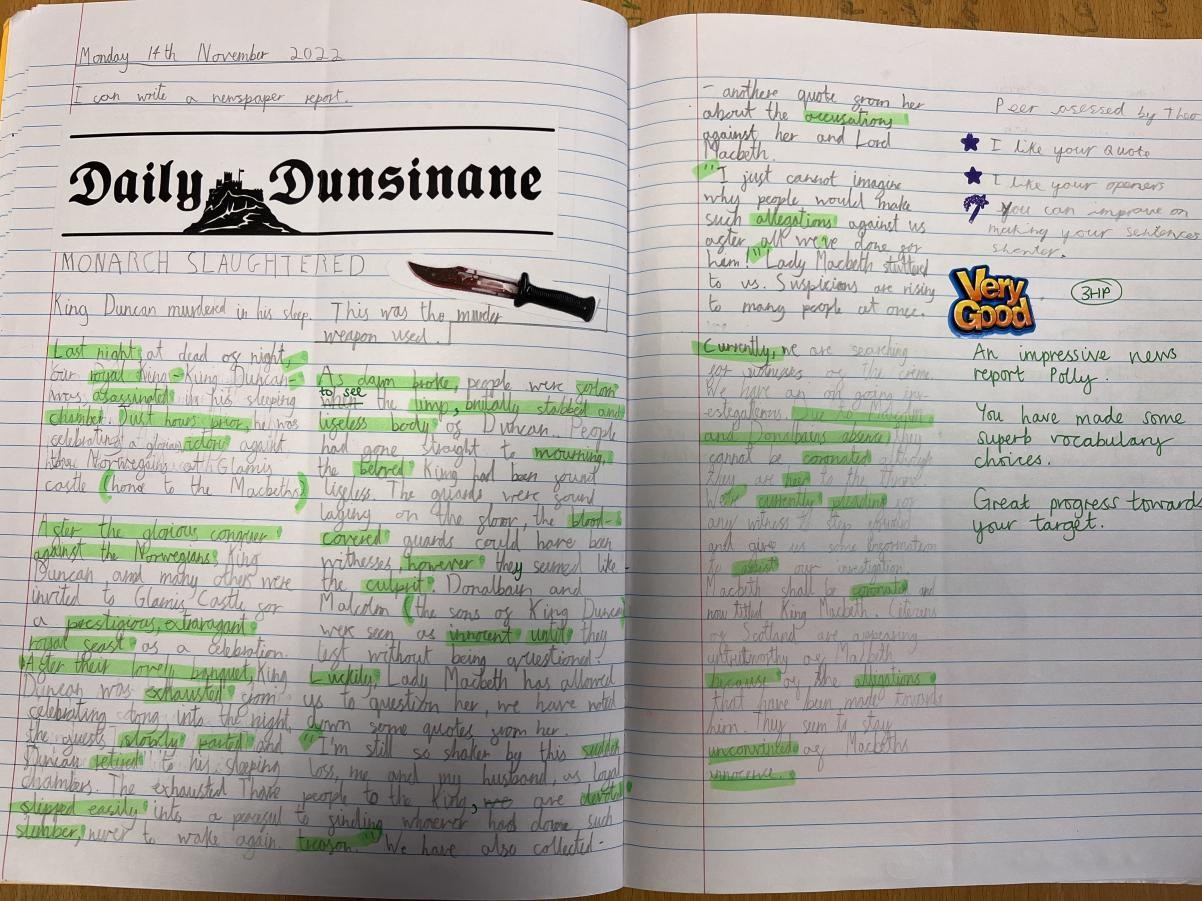 Monday 14th November 2022
I can write a newspaper report.
Daily Dunsinane
MONARCH SLAUGHTERED
King Duncan murdered in his sleep.
Last night, at dead of night,
our royal King - King Duncan -
was assassinated in his sleeping
chamber. Just hours prior, he was
celebrating a glorious victory against
the Norwegians at Glamis
castle (home to the Macbeths)
After the glorious conquer
against the Norwegians, King
Duncan, and many others were
invited to Glamis Castle for
a prestigious, extravagant
royal feast as a celebration.
After their lovely banquet, King
Duncan was exhausted from
celebrating long into the night,
the guests slowly parted and
Duncan retired to his sleeping
chambers. The exhausted Thane
slipped easily into a peaceful
slumber, never to wake again.
This was the murder
weapon used.
As dawn broke, people were
to see
the limp, brutally stabbed and
lifeless body of Duncan. People
had gone straight to mourning,
the beloved King had been found
lifeless. The guards were found
laying on the floor, the blood-
covered guards could have been
witnesses, however they seemed like
the culprit. Donalbain and
Malcolm (the sons of King Duncan)
were seen as innocent until they
left without being questioned.
Luckily, Lady Macbeth has allowed
us to question her, we have noted
down some quotes from her.
"I'm still so shaken by this sudden
loss, me and my husband, as loyal
people to the King, are devoted
to finding whoever had done such
treason." We have also collected -
- anothere quote from her
about the accusations
against her and Lord
Macbeth.
"I just cannot imagine
why people would make
such allegations against us
after all we've done for
him!" Lady Macbeth stuttered
to us. Suspicions are rising
to many people at once.
Currently, we are searching
for witnesses of the crime.
We have an on going inv-
estegations. Due to Malcolm
and Donalbains absence they
cannot be coronated although
they are heir to the throne.
We're currently pleading for
any witness to step forward
and give us some information
to assist our investigation.
Macbeth shall be coronated and
now titled King Macbeth. Citizens
of Scotland are appearing
untrustworthy of Macbeth
because of the allegations
that have been made towards
him. They seem to stay
unconvinced of Macbeths
innocence.
Peer asessed by Theo
I like your quote
I like your openers
You can improve on
making your sentences
shorter.
Very Good
3HP
An impressive news
report Polly.
You have made some
superb vocabulary
choices.
Great progress towards
your target.